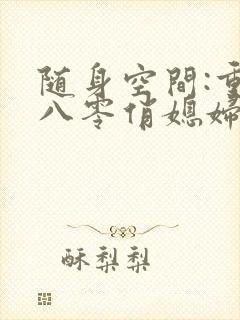 随身空間:重
八零俏媳婦
酥梨梨